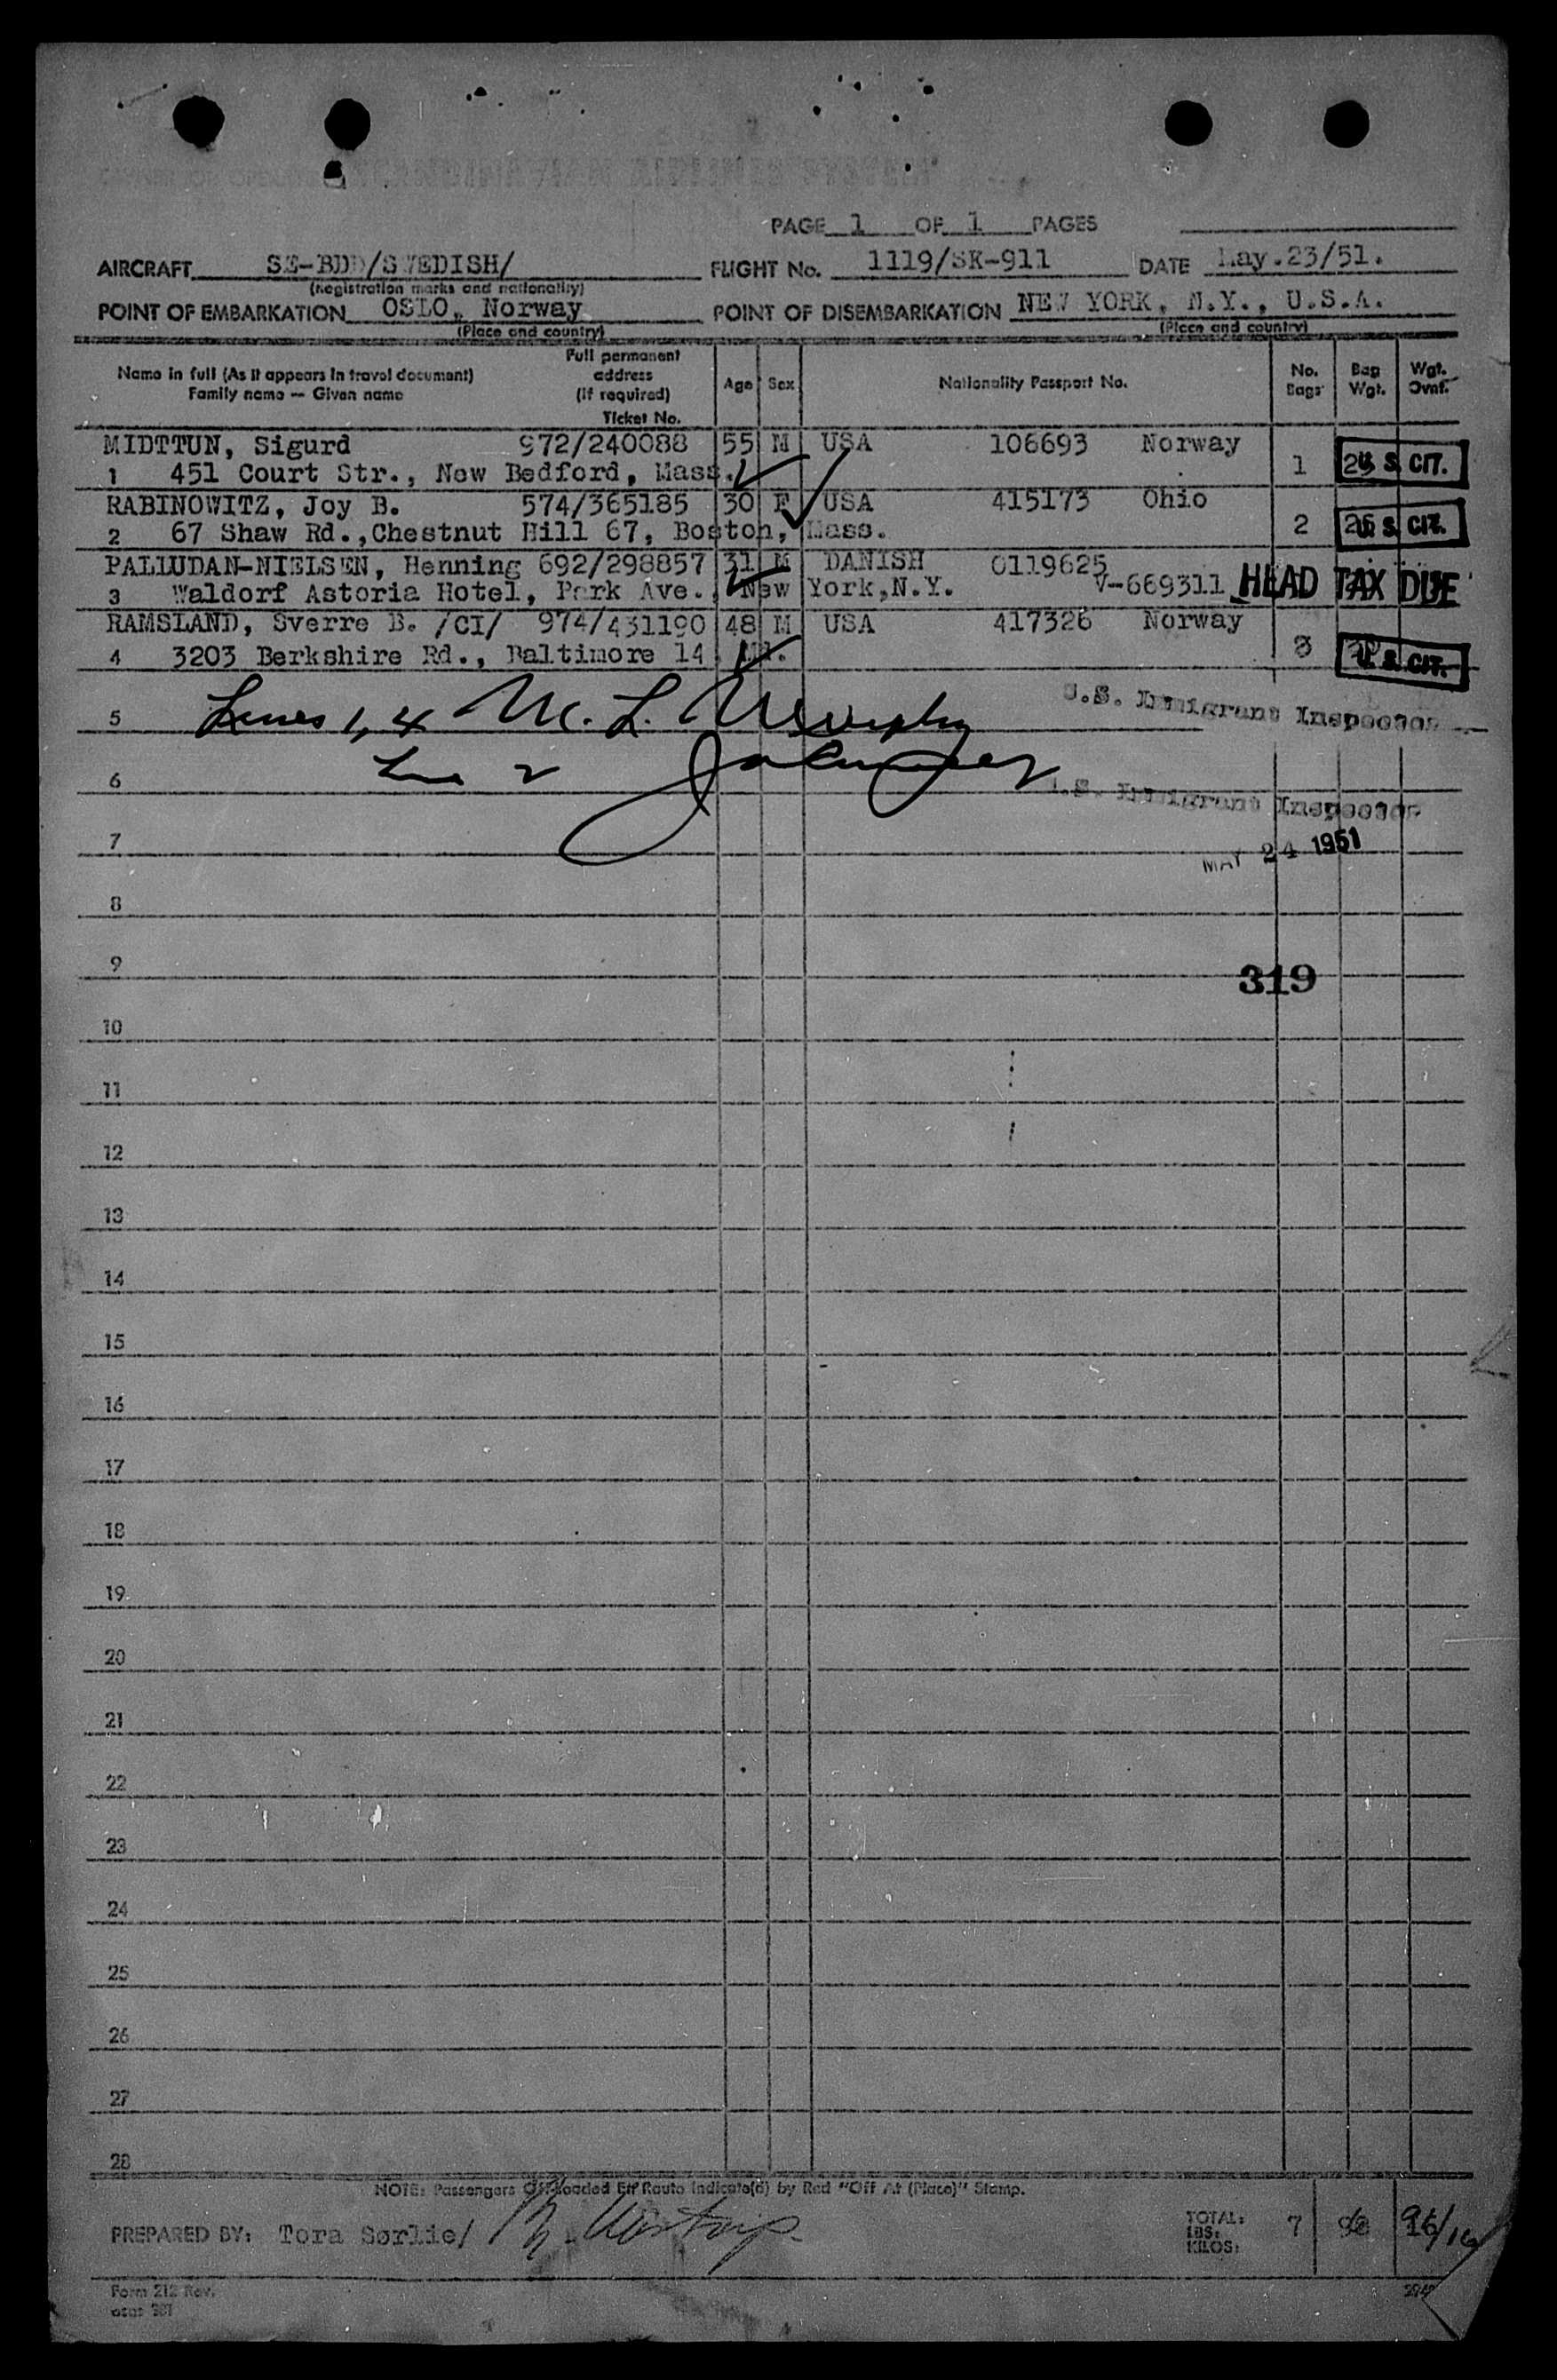 PAGE 1 OF 1 PAGES
AIRCRAFT SE-BDD/SWEDISH/ FLIGHT No. 1119/SK-911 DATE May.23/51.
(Registration marks and nationality)
POINT OF EMBARKATION OSLO, Norway POINT OF DISEMBARKATION NEW YORK, N.Y., U.S.A.
(Place and country) (Place and country)
Name in full (As it appears in travel document)
Family name — Given name
Full permanent
address
(if required)
Ticket No.
Age Sex Nationality Passport No.
No.
Bags
Bag
Wgt.
Wgt.
Ovnt.
MIDTTUN, Sigurd 972/240088 55 M USA 106693 Norway
1 451 Court Str., New Bedford, Mass. 1 U. S. CIT.
RABINOWITZ, Joy B. 574/365185 30 F USA 415173 Ohio
2 67 Shaw Rd.,Chestnut Hill 67, Boston, Mass. 2 U. S. CIT.
PALLUDAN-NIELSEN, Henning 692/298857 31 M DANISH 0119625
3 Waldorf Astoria Hotel, Park Ave., New York,N.Y. V-669311 HEAD TAX DUE
RAMSLAND, Sverre B. /CI/ 974/431190 48 M USA 417326 Norway
4 3203 Berkshire Rd., Baltimore 14 Md. 3 U. S. CIT.
5 Lines 1, 4 M. L. Murphy U.S. Immigrant Inspector
Line 2
6 U.S. Immigrant Inspector
7 MAY 24 1951
8
9 319
10
11
12
13
14
15
16
17
18
19
20
21
22
23
24
25
26
27
28
NOTE: Passengers Offloaded En Route Indicate(d) by Red "Off At (Place)" Stamp.
PREPARED BY: Tora Sørlie/
TOTAL: 7 96/16
LBS:
KILOS:
Form 212 Rev.